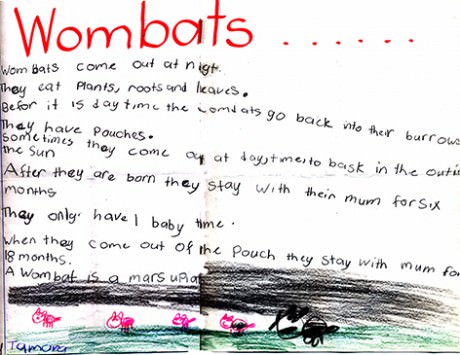 Wombats ......
Wombats come out at nigt.
They eat plants, roots and leaves.
Befor it is daytime the womdats go back into their burrows
They have Pouches.
sometimes they come out at day time to bask in the
the Sun
After they are born they stay with their mum for six
months
They only have 1 baby time.
when they come out of the Pouch they stay with mum for
18 months.
A Wombat is a marsupial
Tamara